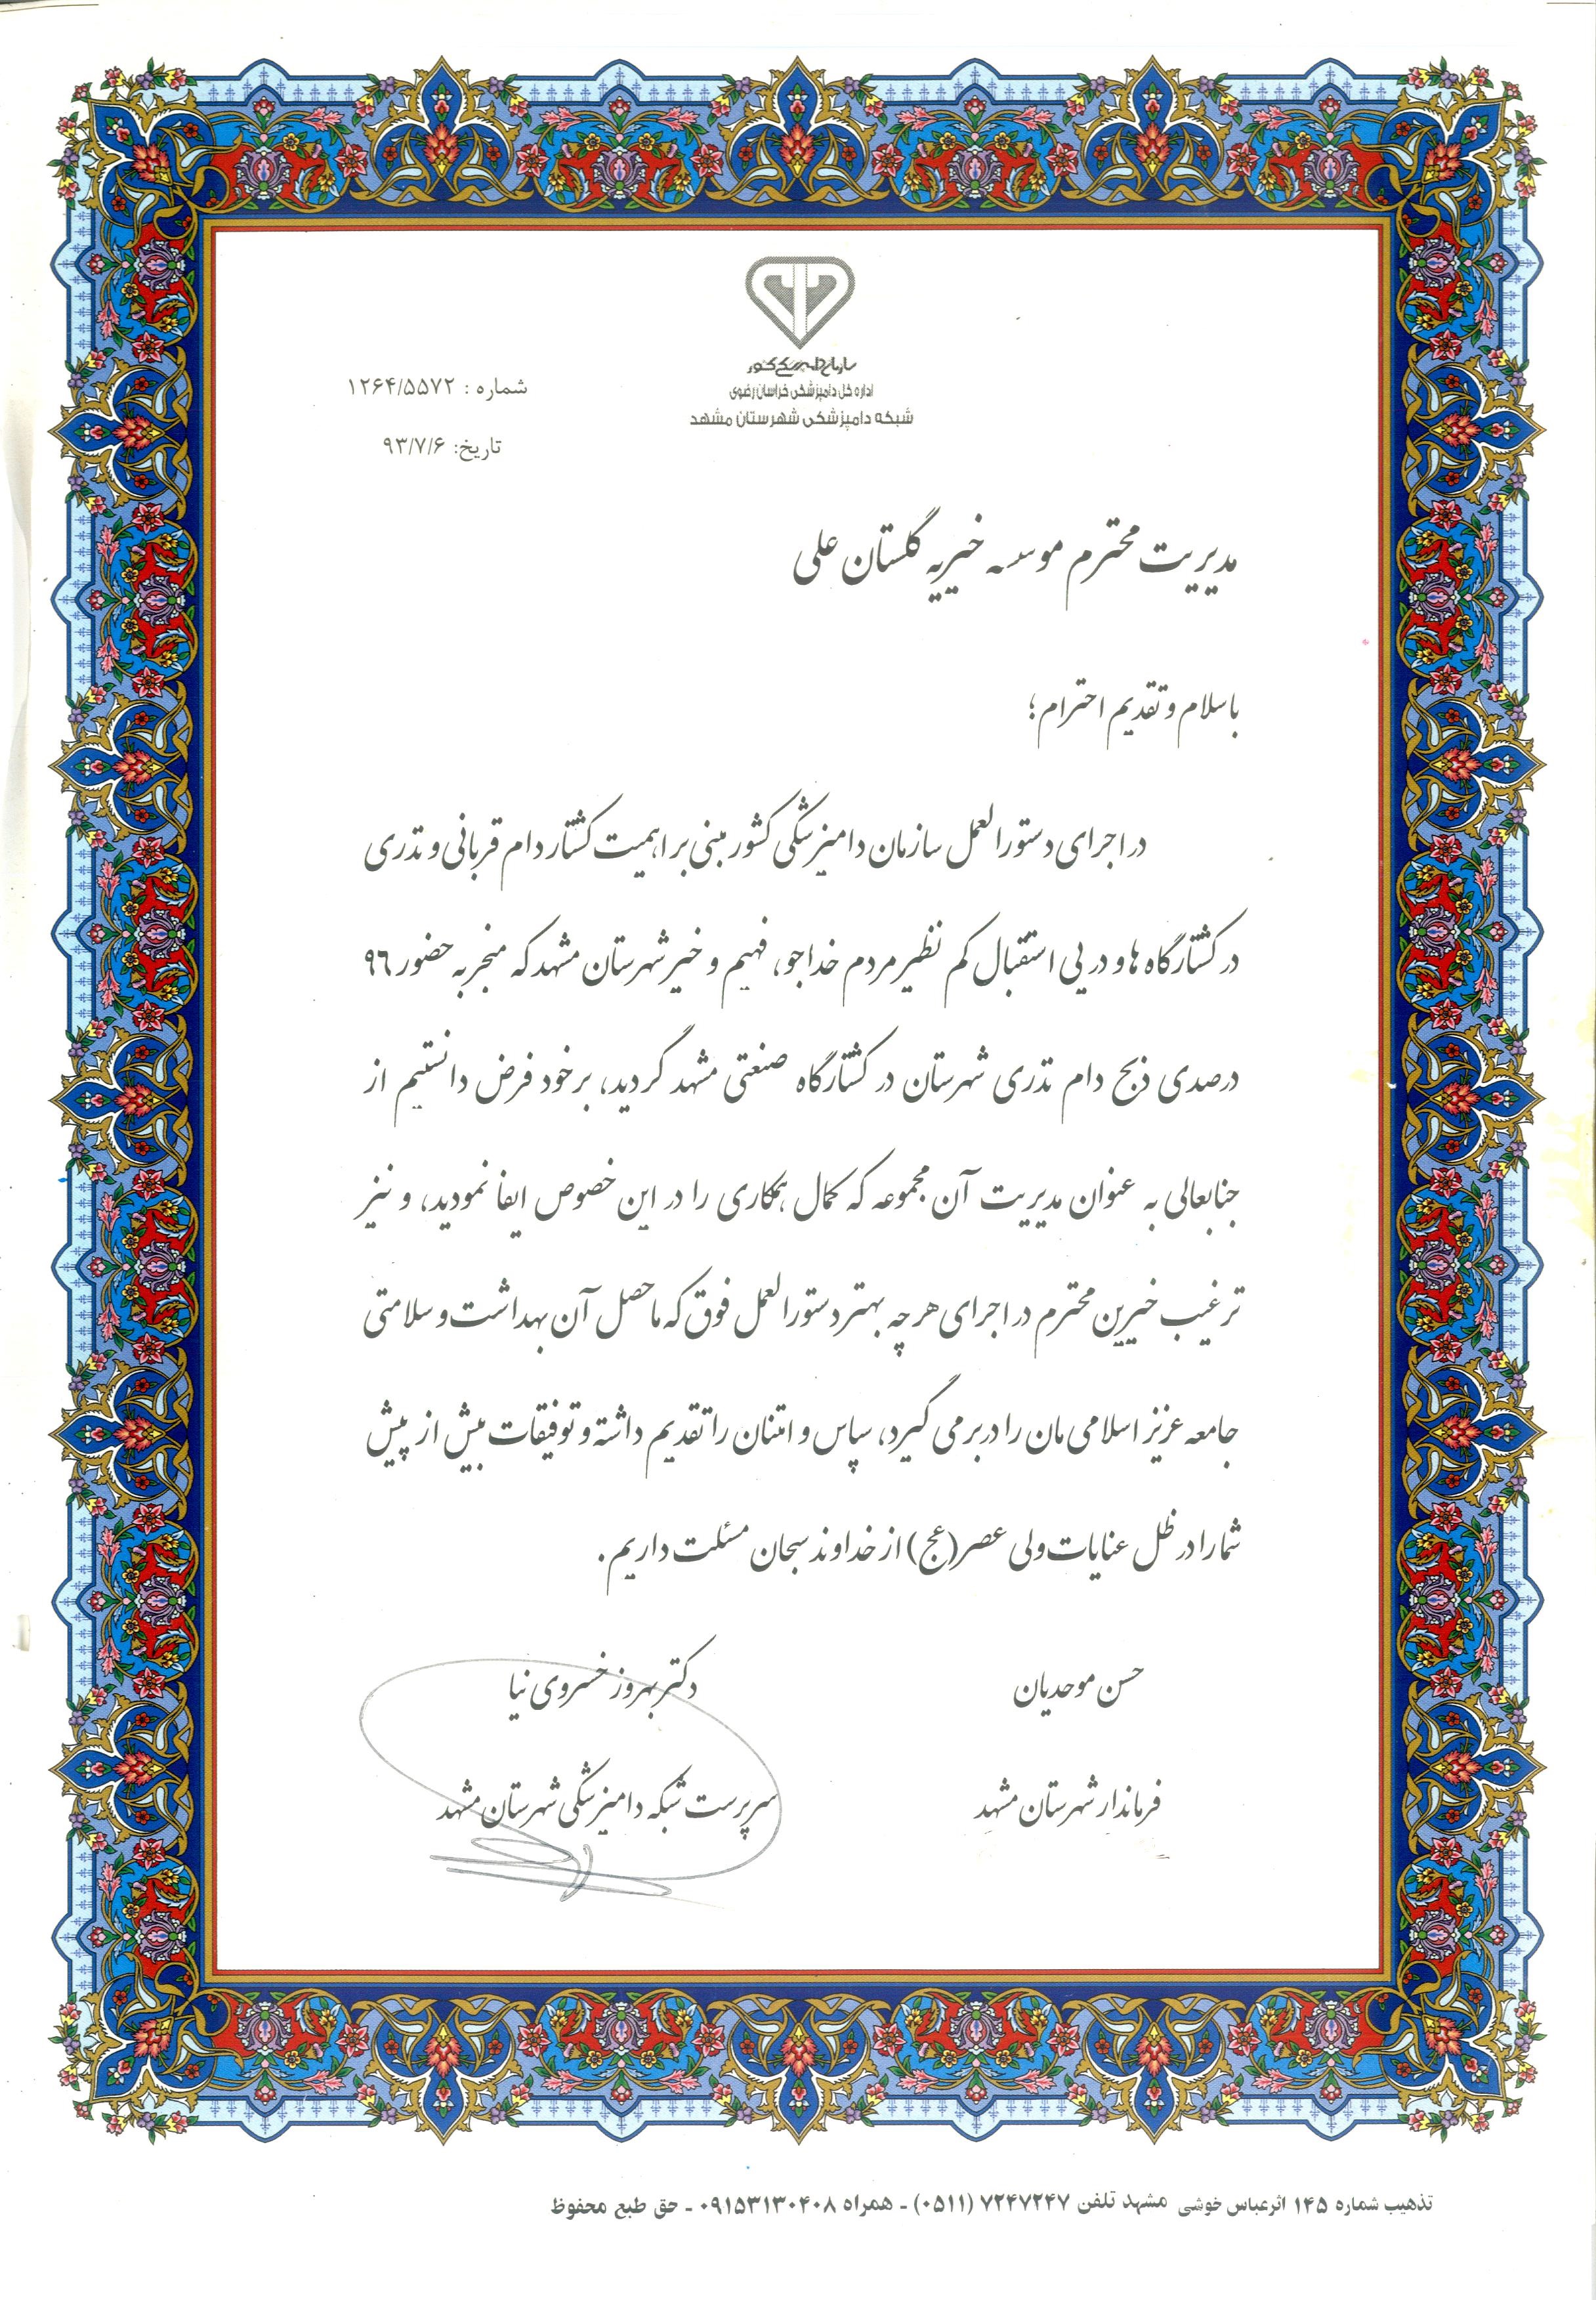 سازمان دامپزشکی کشور
اداره کل دامپزشکی خراسان رضوی
شبکه دامپزشکی شهرستان مشهد
شماره : ۱۲۶۴/۵۵۷۲
تاریخ: ۹۳/۷/۶
مدیریت محترم موسسه خیریه گلستان علی
با سلام و تقدیم احترام؛
در اجرای دستورالعمل سازمان دامپزشکی کشور مبنی بر اهمیت کشتار دام قربانی و نذری
در کشتارگاه ها و در پی استقبال کم نظیر مردم خداجو، فهیم و خیر شهرستان مشهد که منجر به حضور ۹۶
درصدی ذبح دام نذری شهرستان در کشتارگاه صنعتی مشهد گردید، بر خود فرض دانستیم از
جنابعالی به عنوان مدیریت آن مجموعه که کمال همکاری را در این خصوص ایفا نمودید، و نیز
ترغیب خیرین محترم در اجرای هر چه بهتر دستورالعمل فوق که ماحصل آن بهداشت و سلامتی
جامعه عزیز اسلامی مان را در بر می گیرد، سپاس و امتنان را تقدیم داشته و توفیقات بیش از پیش
شما را در ظل عنایات ولی عصر (عج) از خداوند سبحان مسئلت داریم.
حسن موحدیان
دکتر بهروز خسروی نیا
فرماندار شهرستان مشهد
سرپرست شبکه دامپزشکی شهرستان مشهد
تذهیب شماره ۱۴۵ اثر عباس خوشی مشهد تلفن ۷۲۴۷۲۴۷ (۰۵۱۱) - همراه ۰۹۱۵۳۱۳۰۴۰۸ - حق طبع محفوظ